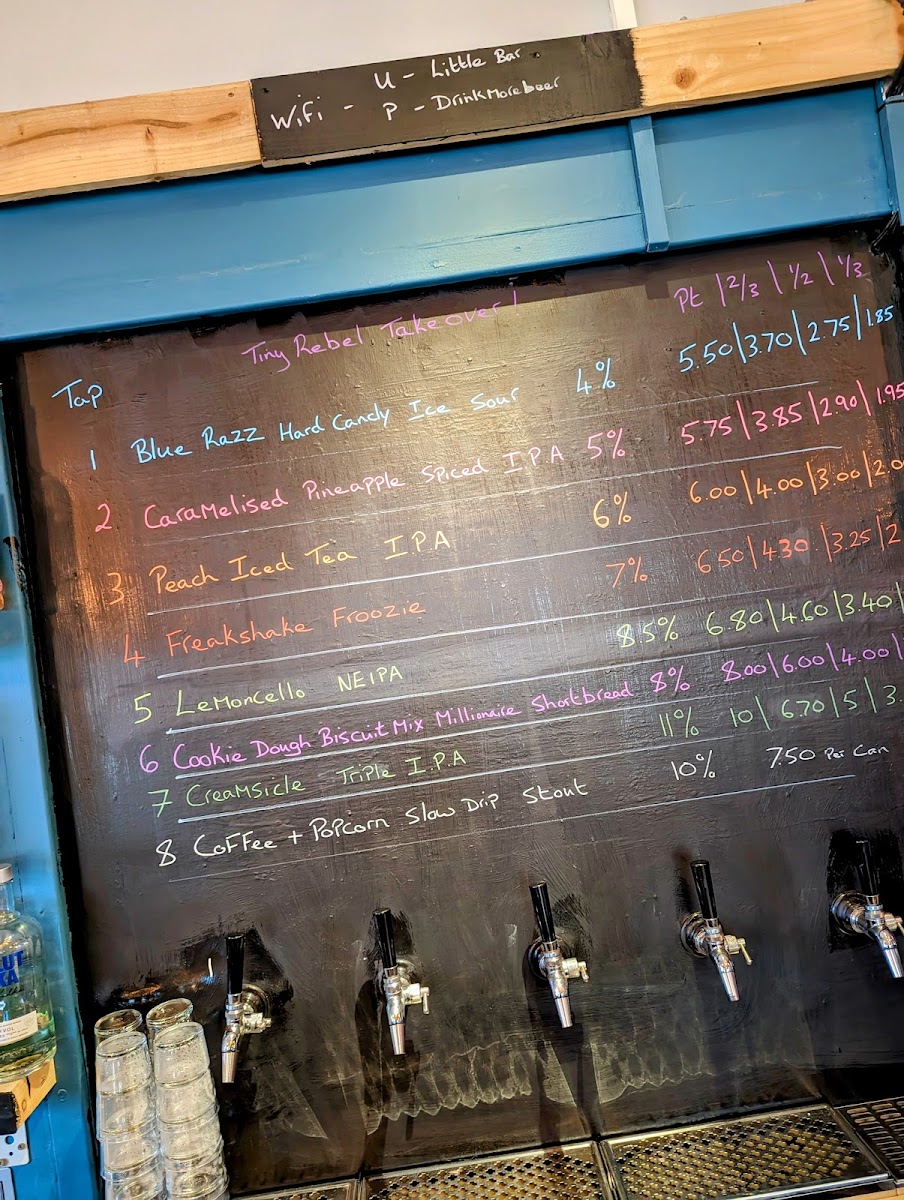 WiFi - U - Little Bar
P - Drinkmorebeer
Tiny Rebel Takeover!
Tap Pt | 2/3 | 1/2 | 1/3
1 Blue Razz Hard Candy Ice Sour 4% 5.50 | 3.70 | 2.75 | 1.85
2 Caramelised Pineapple Spiced I.P.A 5% 5.75 | 3.85 | 2.90 | 1.95
3 Peach Iced Tea I.P.A 6% 6.00 | 4.00 | 3.00 | 2.0
4 Freakshake Froozie 7% 6.50 | 4.30 | 3.25 | 2
5 Lemoncello NEIPA 8.5% 6.80 | 4.60 | 3.40 |
6 Cookie Dough Biscuit Mix Millionaire Shortbread 8% 8.00 | 6.00 | 4.00 |
7 Creamsicle Triple I.P.A 11% 10 | 6.70 | 5 | 3.
8 Coffee + Popcorn Slow Drip Stout 10% 7.50 Per Can